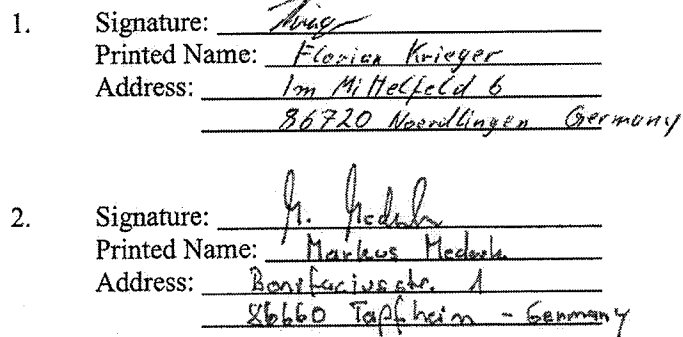 1. Signature:
Printed Name: Florian Krieger
Address: Im Mittelfeld 6
86720 Noerdlingen Germany
2. Signature: M.
Printed Name: Markus
Address: Bonifaciusstr. 1
86660 Tapfheim - Germany